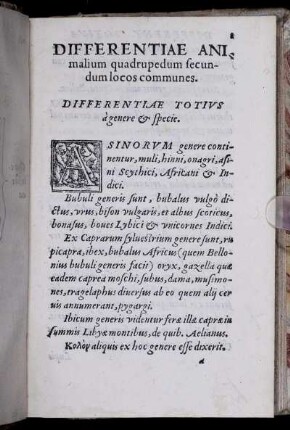 DIFFERENTIAE ANI,
malium quadrupedum secun-
dum locos communes.
DIFFERENTIAE TOTIVS
à genere & specie.
ASINORVM genere conti-
nentur, muli, hinni, onagri, asi-
ni Scythici, Africani & In-
dici.
Bubuli generis sunt, bubalus vulgò di-
ctus, vrus, bison vulgaris, et albus scoticus,
bonasus, boues Lybici & vnicornes Indici.
Ex Caprarum syluestrium genere sunt, ru
picapra, ibex, bubalus Africus (quem Bello-
nius bubuli generis facit) oryx, gazella quæ
eadem caprea moschi, subus, dama, musimo-
nes, tragelaphus diuersus ab eo quem alij cer
uis annumerant, pygargi.
Ibicum generis videntur feræ illæ capræ in
summis Libyæ montibus, de quib. Aelianus.
Κολὸν aliquis ex hoc genere esse dixerit.
a